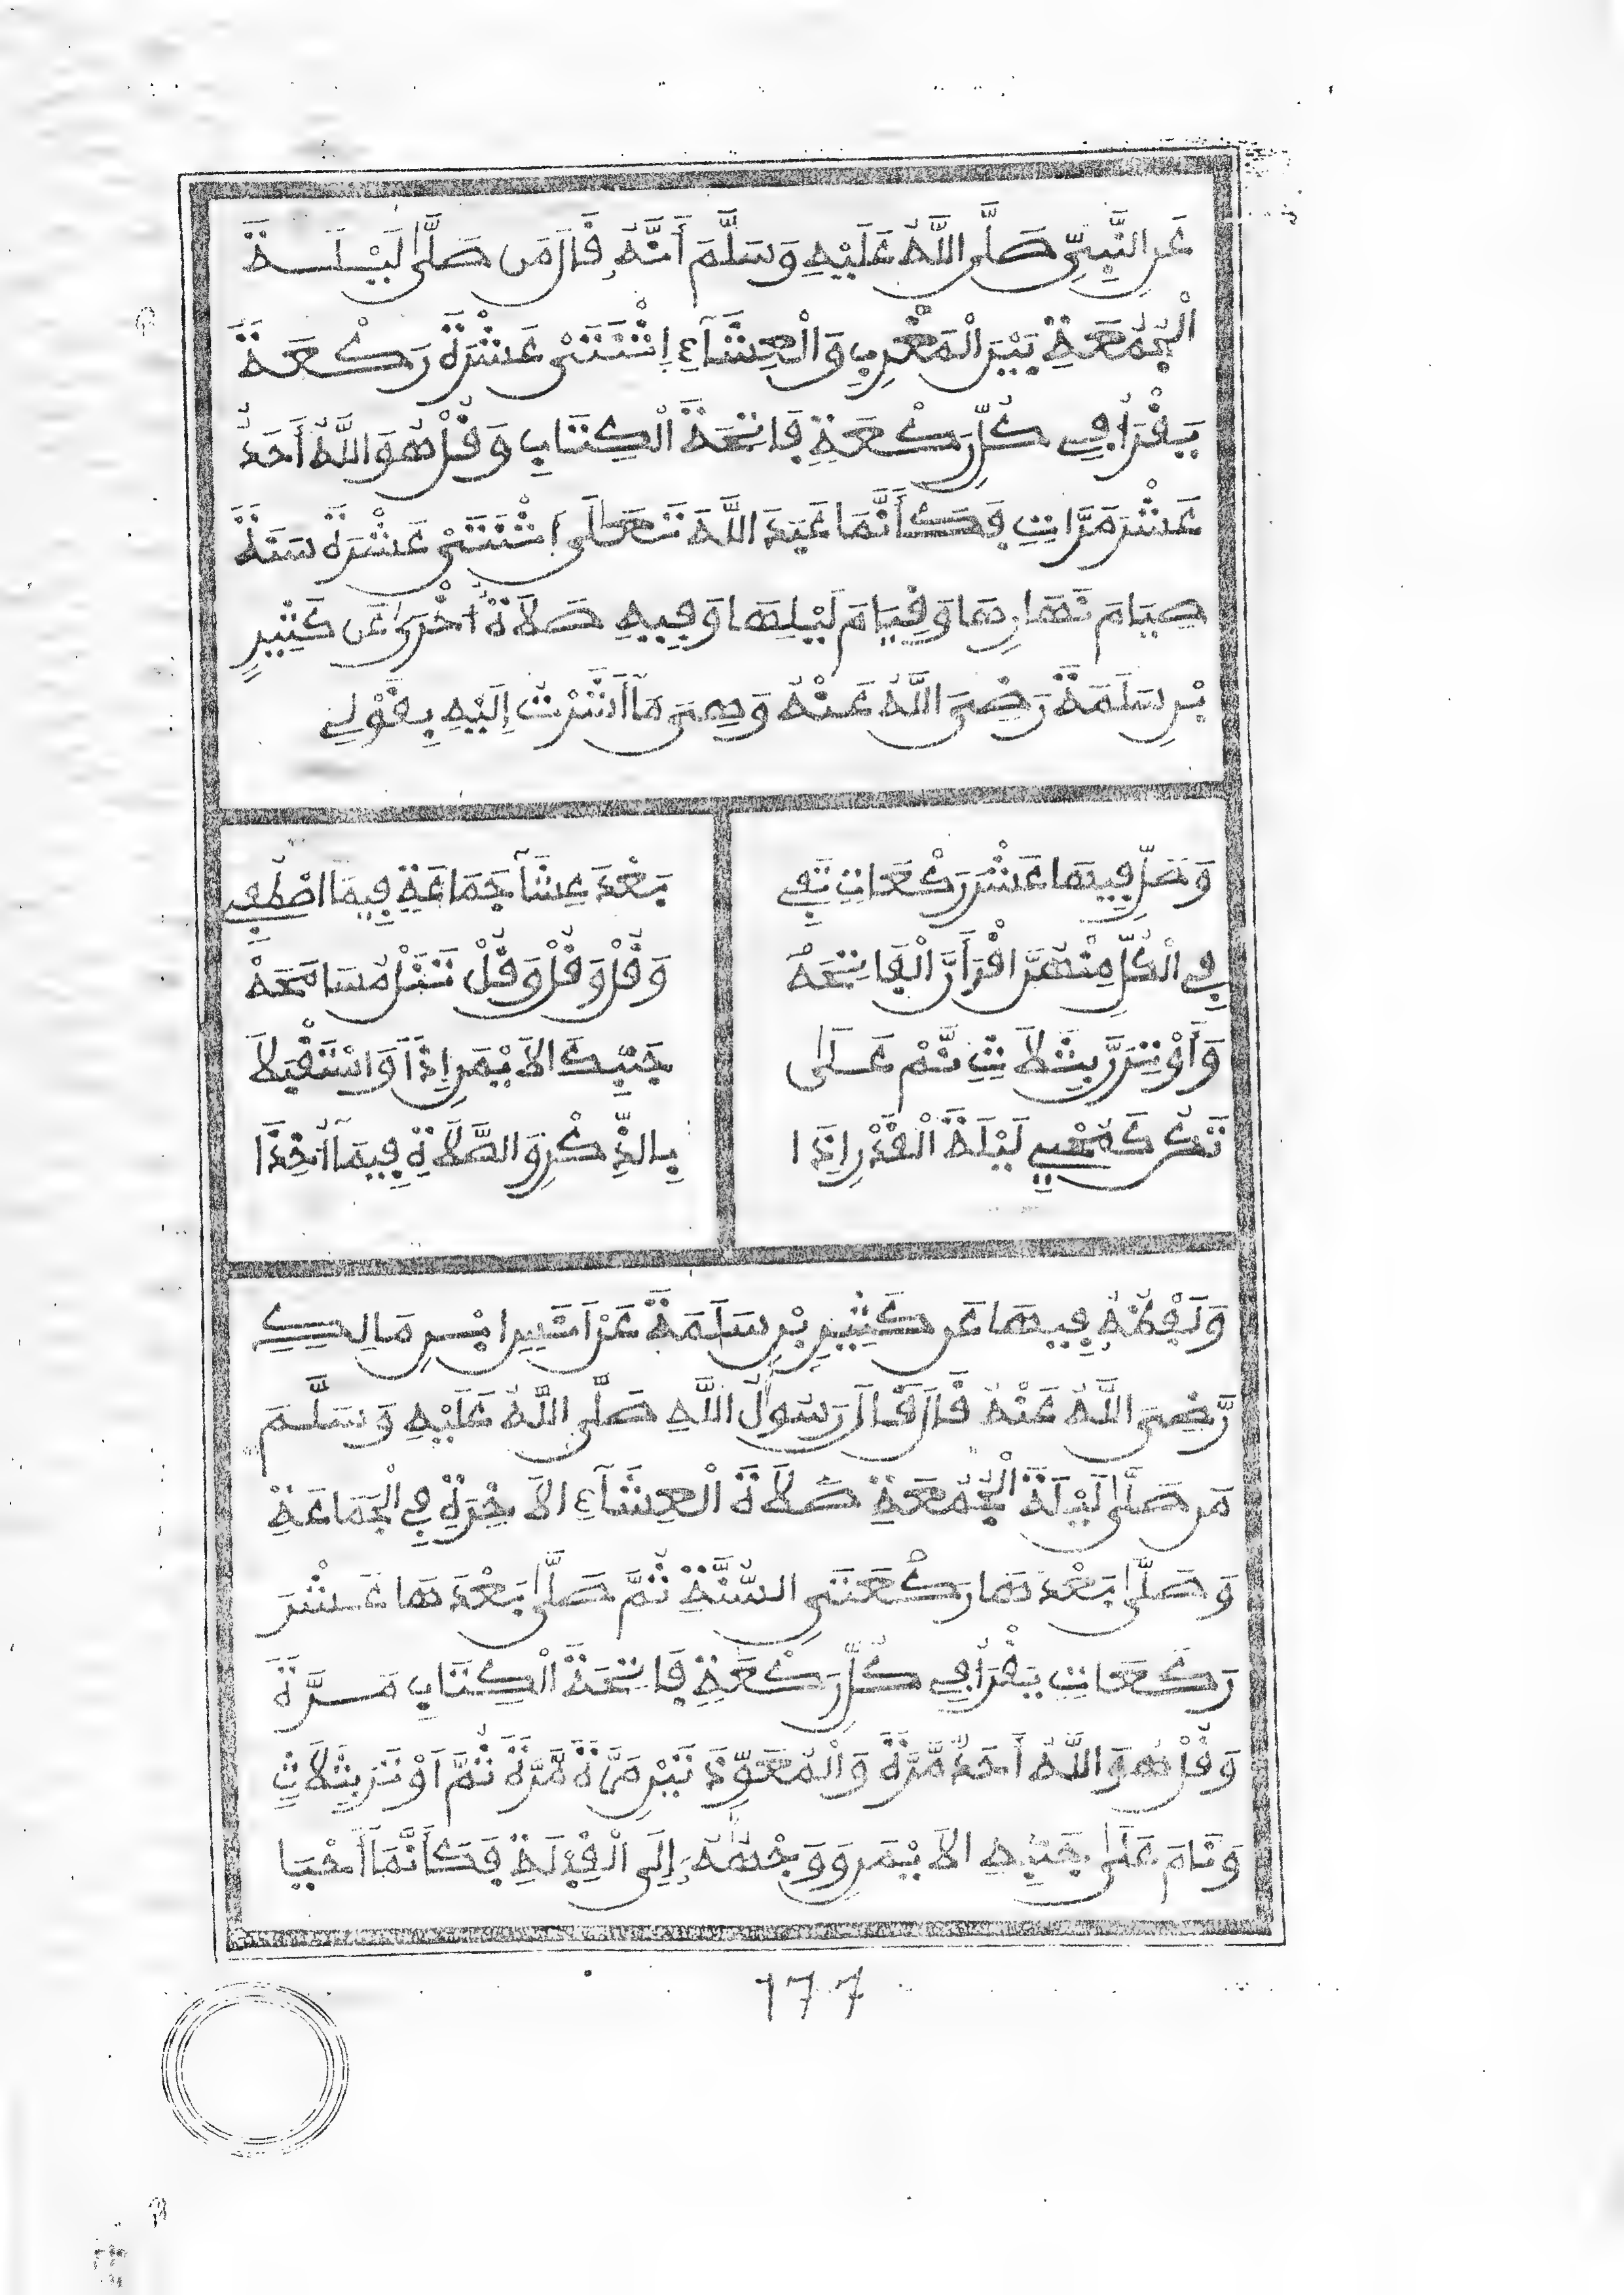 عَنِ النَّبِيِّ صَلَّى اللَّهُ عَلَيْهِ وَسَلَّمَ أَنَّهُ قَالَ مَن صَلَّى لَيْلَةَ
الْجُمُعَةِ بَيْنَ الْمَغْرِبِ وَالْعِشَآءِ اِثْنَتَىْ عَشْرَةَ رَكْعَةً
يَقْرَأُ فِي كُلِّ رَكْعَةٍ فَاتِحَةَ الْكِتَابِ وَقُلْ هُوَ اللَّهُ أَحَدٌ
عَشْرَ مَرَّاتٍ فَكَأَنَّمَا عَبَدَ اللَّهَ تَعَالَى اِثْنَتَىْ عَشْرَةَ سَنَةً
صِيَامَ نَهَارِهَا وَقِيَامَ لَيْلِهَا وَفِيهِ صَلَاةٌ أُخْرَى عَن كَثِيرِ
بْنِ سَلَمَةَ رَضِيَ اللَّهُ عَنْهُ وَهِيَ مَآ أَشَرْتُ إِلَيْهِ بِقَوْلِي
وَصَلِّ فِيهَا عَشْرَ رَكْعَاتٍ تَفِي
بَعْدَ عِشَآ جَمَاعَةٍ فِيمَا اصْطُفِي
فِي الْكُلِّ مِنْهُنَّ اقْرَأَنَّ الْفَاتِحَهْ
وَقُلْ وَقُلْ وَقُلْ تَنَلْ مُسَامَحَهْ
وَأَوْتِرَنَّ بِثَلَاثٍ نَمْ عَلَى
جَنْبِكَ الَايْمَنِ إِذًا وَاسْتَقْبِلَا
تَكُن كَمُحْيِي لَيْلَةَ الْقَدْرِ إِذَا
بِالذِّكْرِ وَالصَّلَاةِ فِيمَآ أُخِذَا
وَلَفْظُهُ فِيهَا عَن كَثِيرِ بْنِ سَلَمَةَ عَنْ اَنَسِ ابْنِ مَالِكٍ
رَّضِيَ اللَّهُ عَنْهُ قَالَ قَالَ رَسُولُ اللَّهِ صَلَّى اللَّهُ عَلَيْهِ وَسَلَّمَ
مَن صَلَّى لَيْلَةَ الْجُمُعَةِ صَلَاةَ الْعِشَآءِ الَاخِرَةِ فِي الْجَمَاعَةِ
وَصَلَّى بَعْدَهَا رَكْعَتَيِ السُّنَّةِ ثُمَّ صَلَّى بَعْدَهَا عَشْرَ
رَكَعَاتٍ يَقْرَأُ فِي كُلِّ رَكْعَةٍ فَاتِحَةَ الْكِتَابِ مَرَّةً
وَقُلْ هُوَ اللَّهُ أَحَدٌ مَّرَّةً وَالْمُعَوِّذَتَيْنِ مَرَّةً مَّرَّةً ثُمَّ اَوْتَرَ بِثَلَاثٍ
وَنَامَ عَلَى جَنْبِهِ الَايْمَنِ وَوَجْهُهُ إِلَى الْقِبْلَةِ فَكَأَنَّمَآ أَحْيَا
177